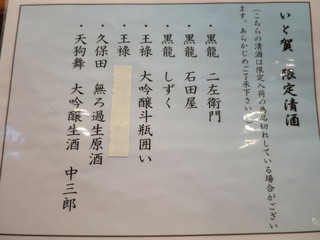 いと賀 限定清酒
(こちらの清酒は限定入荷の為品切れしている場合がござい
ます。あらかじめご了承下さい
・黒龍 二左衛門
・黒龍 石田屋
・黒龍 しずく
・王祿 大吟醸斗瓶囲い
・王祿
・久保田 無ろ過生原酒
・天狗舞 大吟醸生酒 中三郎